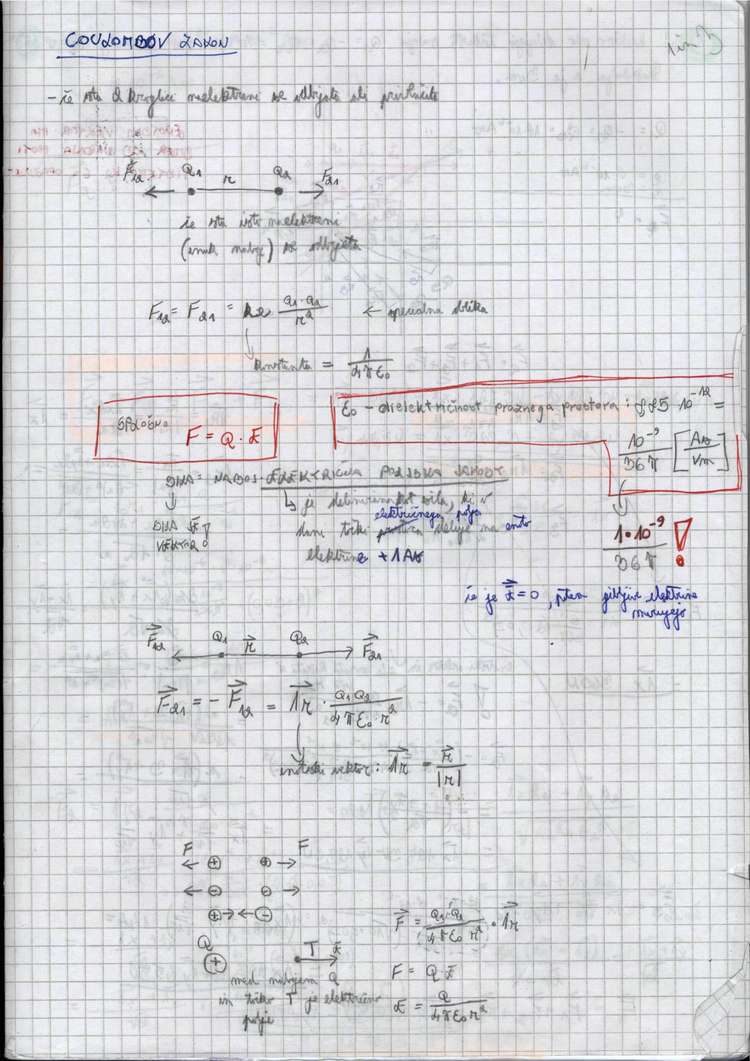 COULOMBOV ZAKON
- če sta 2 kroglici naelektreni se odbijata ali privlačita
F₁₂ Q₁ r Q₂ F₂₁
če sta isto naelektreni
(enak naboj) se odbijata
F₁₂ = F₂₁ = k · Q₁·Q₂ / r² ← specialna oblika
konstanta = 1 / 4πε₀
SPLOŠNO: F = Q · E
ε₀ - dielektričnost praznega prostora: 8,85 10⁻¹² =
10⁻⁹ / 36π [As / Vm]
1·10⁻⁹ / 36π !
ELEKTRIČNA POLJSKA JAKOST
je definirana kot sila, ki v
dani točki električnega polja deluje na enoto
elektrine + 1As
IMA
VEKTOR!
če je E = 0, potem gibljive elektrine mirujejo
F₁₂ Q₁ r Q₂ F₂₁
F₂₁ = - F₁₂ = 1r · Q₁Q₂ / 4πε₀·r²
enotski vektor: 1r = r / |r|
F F
+ +
- -
+ -
Q T E
+
med nabojem Q
in točko T je električno
polje
F = Q₁·Q₂ / 4πε₀ r² · 1r
F = Q·E
E = Q / 4πε₀r²